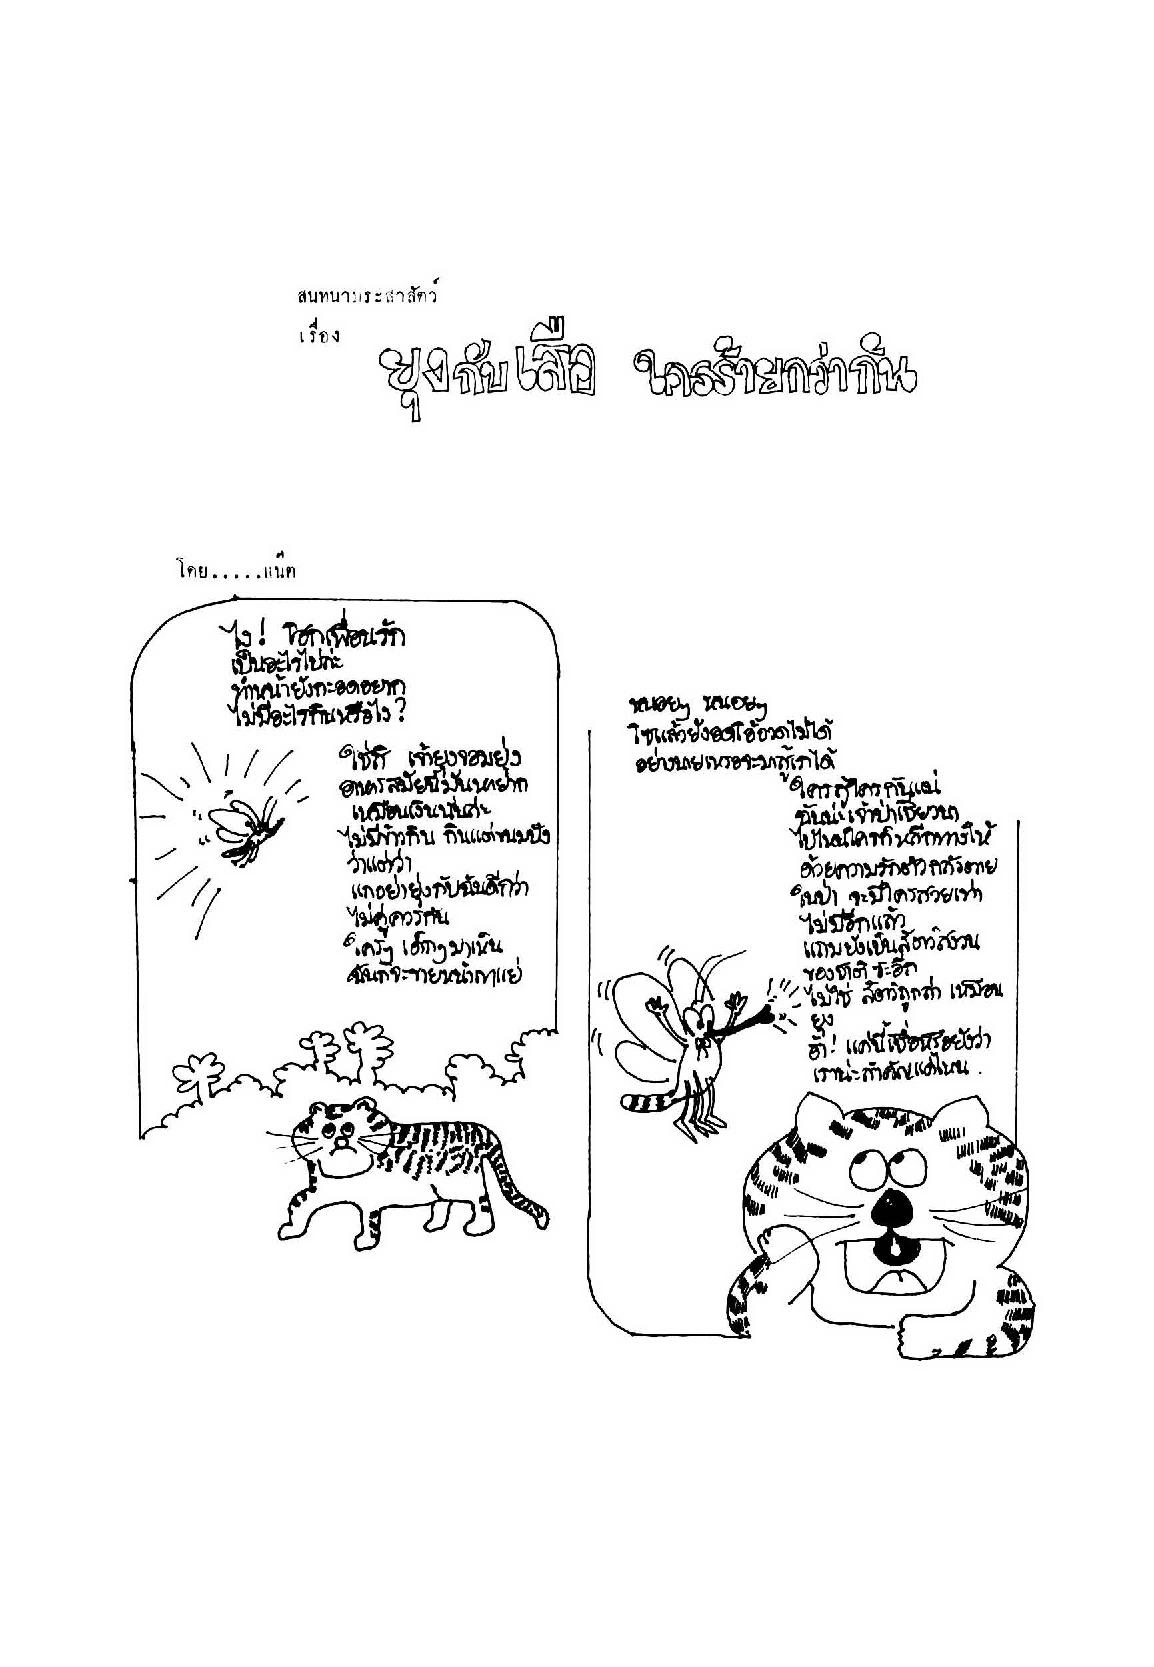 สนทนาประสาสัตว์
เรื่อง
ยุงกับเสือ ใครร้ายกว่ากัน
โดย.....แน๊ต
ไง! โฮกเพื่อนรัก
เป็นอะไรไปล่ะ
ทำหน้ายังกะอดอยาก
ไม่มีอะไรกินหรือไง?
ใช่สิ เจ้ายุงจอมยุ่ง
อาหารสมัยนี้มันหายาก
เหมือนเงินนั่นล่ะ
ไม่มีข้าวกิน กินแต่ขนมปัง
ว่าแต่ว่า
แกอย่ายุ่งกับฉันดีกว่า
ไม่คู่ควรกัน
ใครๆ เอ็กๆ มาเห็น
ฉันก็จะขายหน้ากาแย่
หนอยๆ หนอยๆ
โซแล้วยังอดโอ้อวดไม่ได้
อย่างนายเหรอจะมาสู้เราได้
ใครสู้ใครกันแน่
ฉันน่ะเจ้าป่าเชียวนา
ไปไหนใครก็หลีกทางให้
ด้วยความรักตัวกลัวตาย
ในป่า จะมีใครสวยเท่า
ไม่มีอีกแล้ว
แถมยังเป็นสัตว์สงวน
ของชาติซะอีก
ไม่ใช่ สัตว์ถูกล่า เหมือน
ยุง
ฮ้า! แค่นี้เชื่อหรือยังว่า
เราน่ะสำคัญแค่ไหน.